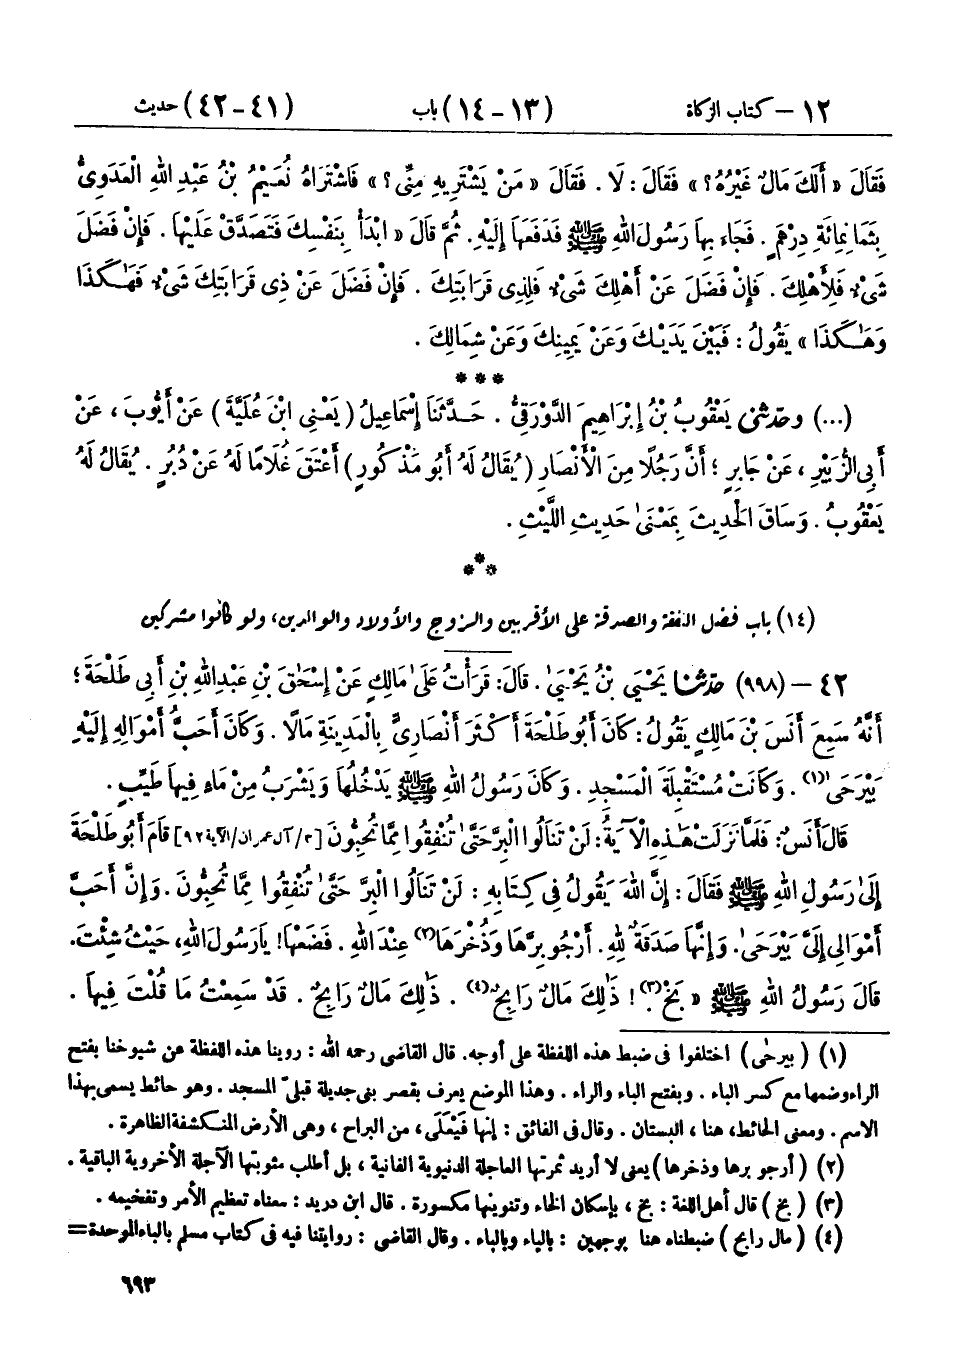 ١٢ – كتاب الزكاة (١٣ - ١٤) باب (٤١ - ٤٢) حديث
فَقَالَ « أَلَكَ مَالٌ غَيْرُهُ؟ » فَقَالَ : لَا . فَقَالَ « مَنْ يَشْتَرِيهِ مِنِّى ؟ » فَاشْتَرَاهُ نُعَيْمُ بْنُ عَبْدِ اللهِ الْعَدَوِىُّ
بِثَمَانِمِائَةِ دِرْهَمٍ . فَجَاءَ بِهَا رَسُولَ اللهِ ﷺ فَدَفَعَهَا إِلَيْهِ. ثُمَّ قَالَ « ابْدَأْ بِنَفْسِكَ فَتَصَدَّقْ عَلَيْهَا . فَإِنْ فَضَلَ
شَىْءٌ فَلِأَهْلِكَ . فَإِنْ فَضَلَ عَنْ أَهْلِكَ شَىْءٌ فَلِذِى قَرَابَتِكَ . فَإِنْ فَضَلَ عَنْ ذِى قَرَابَتِكَ شَىْءٌ فَهَٰكَذَا
وَهَٰكَذَا » يَقُولُ : فَبَيْنَ يَدَيْكَ وَعَنْ يَمِينِكَ وَعَنْ شِمَالِكَ .
* * *
(...) وحَدَّثَنِى يَعْقُوبُ بْنُ إِبْرَاهِيمَ الدَّوْرَقِىُّ . حَدَّثَنَا إِسْمَاعِيلُ ( يَعْنِى ابْنَ عُلَيَّةَ ) عَنْ أَيُّوبَ ، عَنْ
أَبِى الزُّبَيْرِ ، عَنْ جَابِرٍ ؛ أَنَّ رَجُلًا مِنَ الْأَنْصَارِ ( يُقَالُ لَهُ أَبُو مَذْكُورٍ ) أَعْتَقَ غُلَامًا لَهُ عَنْ دُبُرٍ . يُقَالُ لَهُ
يَعْقُوبُ . وَسَاقَ الْحَدِيثَ بِمَعْنَىٰ حَدِيثِ اللَّيْثِ .
* * *
(١٤) باب فضل النفقة والصدقة على الأقربين والزوج والأولاد والوالدين، ولو كانوا مشركين
٤٢ – (٩٩٨) حَدَّثَنَا يَحْيَىٰ بْنُ يَحْيَىٰ . قَالَ: قَرَأْتُ عَلَىٰ مَالِكٍ عَنْ إِسْحَٰقَ بْنِ عَبْدِ اللهِ بْنِ أَبِى طَلْحَةَ ؛
أَنَّهُ سَمِعَ أَنَسَ بْنَ مَالِكٍ يَقُولُ : كَانَ أَبُو طَلْحَةَ أَكْثَرَ أَنْصَارِىٍّ بِالْمَدِينَةِ مَالًا . وَكَانَ أَحَبُّ أَمْوَالِهِ إِلَيْهِ
بَيْرَحَىٰ(١) . وَكَانَتْ مُسْتَقْبِلَةَ الْمَسْجِدِ . وَكَانَ رَسُولُ اللهِ ﷺ يَدْخُلُهَا وَيَشْرَبُ مِنْ مَاءٍ فِيهَا طَيِّبٍ .
قَالَ أَنَسٌ: فَلَمَّا نَزَلَتْ هَٰذِهِ الْآيَةُ: لَنْ تَنَالُوا الْبِرَّ حَتَّىٰ تُنْفِقُوا مِمَّا تُحِبُّونَ [٣/آل عمران/الآية ٩٢] قَامَ أَبُو طَلْحَةَ
إِلَىٰ رَسُولِ اللهِ ﷺ فَقَالَ : إِنَّ اللهَ يَقُولُ فِى كِتَابِهِ : لَنْ تَنَالُوا الْبِرَّ حَتَّىٰ تُنْفِقُوا مِمَّا تُحِبُّونَ . وَإِنَّ أَحَبَّ
أَمْوَالِى إِلَىَّ بَيْرَحَىٰ. وَإِنَّهَا صَدَقَةٌ لِلهِ. أَرْجُو بِرَّهَا وَذُخْرَهَا(٢) عِنْدَ اللهِ . فَضَعْهَا ! يَا رَسُولَ اللهِ، حَيْثُ شِئْتَ.
قَالَ رَسُولُ اللهِ ﷺ « بَخْ(٣) ! ذَٰلِكَ مَالٌ رَابِحٌ(٤) . ذَٰلِكَ مَالٌ رَابِحٌ . قَدْ سَمِعْتُ مَا قُلْتَ فِيهَا .
(١) ( بيرحى ) اختلفوا فى ضبط هذه اللفظة على أوجه. قال القاضى رحمه الله : روينا هذه اللفظة عن شيوخنا بفتح
الراء وضمها مع كسر الباء . وبفتح الباء والراء . وهذا الموضع يعرف بقصر بنى جديلة قبلىّ المسجد . وهو حائط يسمى بهذا
الاسم . ومعنى الحائط، هنا ، البستان . وقال فى الفائق : إنها فَيْعَلَى ، من البراح ، وهى الأرض المنكشفة الظاهرة .
(٢) ( أرجو برها وذخرها ) يعنى لا أريد ثمرتها العاجلة الدنيوية الفانية ، بل أطلب مثوبتها الآجلة الأخروية الباقية .
(٣) ( بخ ) قال أهل اللغة : بخ ، بإسكان الخاء وتنوينها مكسورة . قال ابن دريد : معناه تعظيم الأمر وتفخيمه .
(٤) ( مال رابح ) ضبطناه هنا بوجهين : بالياء وبالباء . وقال القاضى : روايتنا فيه فى كتاب مسلم بالباء الموحدة =
٦٩٣